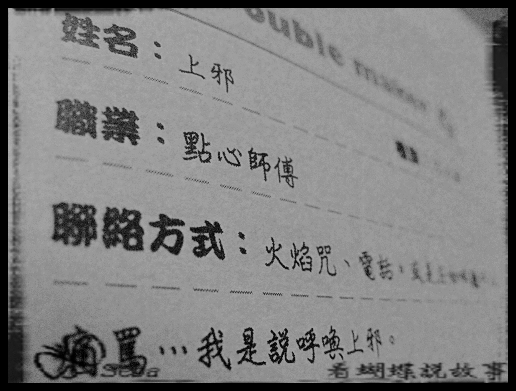 ouble maker
姓名：上邪
職業：點心師傅
聯絡方式：火焰咒、電話，
痛罵…我是說呼喚上邪。
看蝴蝶說故事